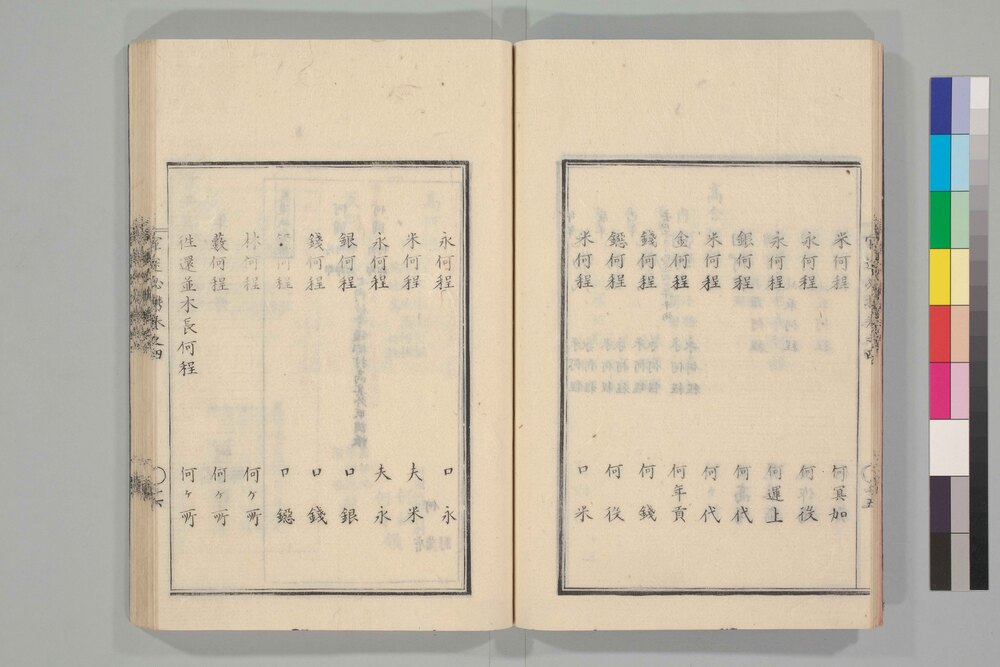 米何程 何冥加
永何程 何作役
永何程 何運上
銀何程 何高代
米何程 何代
金何程 何年貢
錢何程 何錢
鐚何程 何役
米何程 口米
永何程 口永
米何程 夫米
永何程 夫永
銀何程 口銀
錢何程 口錢
何程 口鐚
林何程 何ヶ所
藪何程 何ヶ所
往還並木長何程 何ヶ所